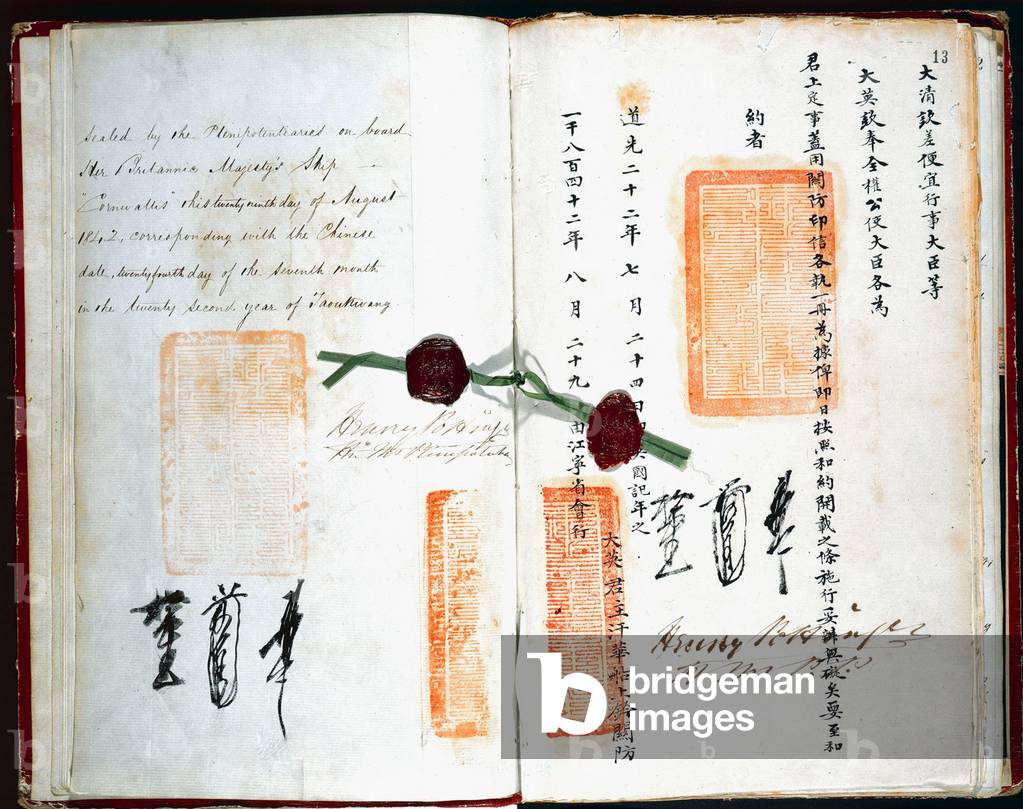 Sealed by the Plenipotentiaries on board
Her Britannic Majesty's Ship
"Cornwallis" this twenty ninth day of August
1842, corresponding with the Chinese
date, twenty fourth day of the seventh month
in the twenty second year of Taoukwang
Henry Pottinger
13
大清欽差便宜行事大臣等
大英欽奉全權公使大臣各為
君上定事蓋用關防印信各執一冊為據俾即日按照和約開載之條施行妥辦無礙矣要至和
約者
道光二十二年七月二十四日即英國記年之
一千八百四十二年八月二十九日由江寧省會行
大英君主汗華船上鈐關防
Henry Pottinger
bridgeman
images